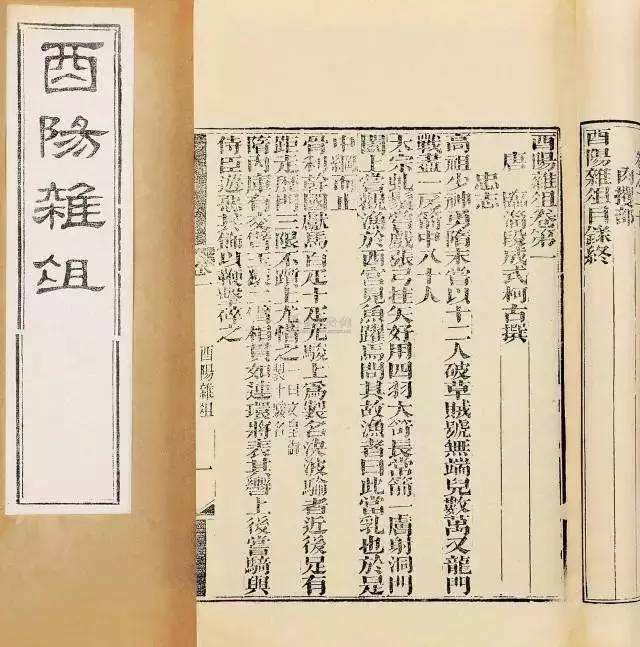 酉陽雜俎
肉攫部
酉陽雜俎目錄終
酉陽雜俎卷第一
唐 臨淄段成式柯古撰
忠志
高祖少神勇隋末嘗以十二人破草賊號無端兒數萬又龍門
戰盡一房箭中八十人
太宗虬鬚嘗戲張弓挂矢好用四羽大笴長常箭一膚射洞門
闔上嘗觀漁於西宮見魚躍焉問其故漁者曰此當乳也於是
中網而止
骨利幹國獻馬百疋十疋尤駿上為製名決波騟者近後足有
距走歷門三限不躓上尤惜之
隋內庫有交臂玉猿二臂相貫如連環將表其轡上後嘗騎與
侍臣遊惡其飾以鞭擊碎之
酉陽雜俎 一